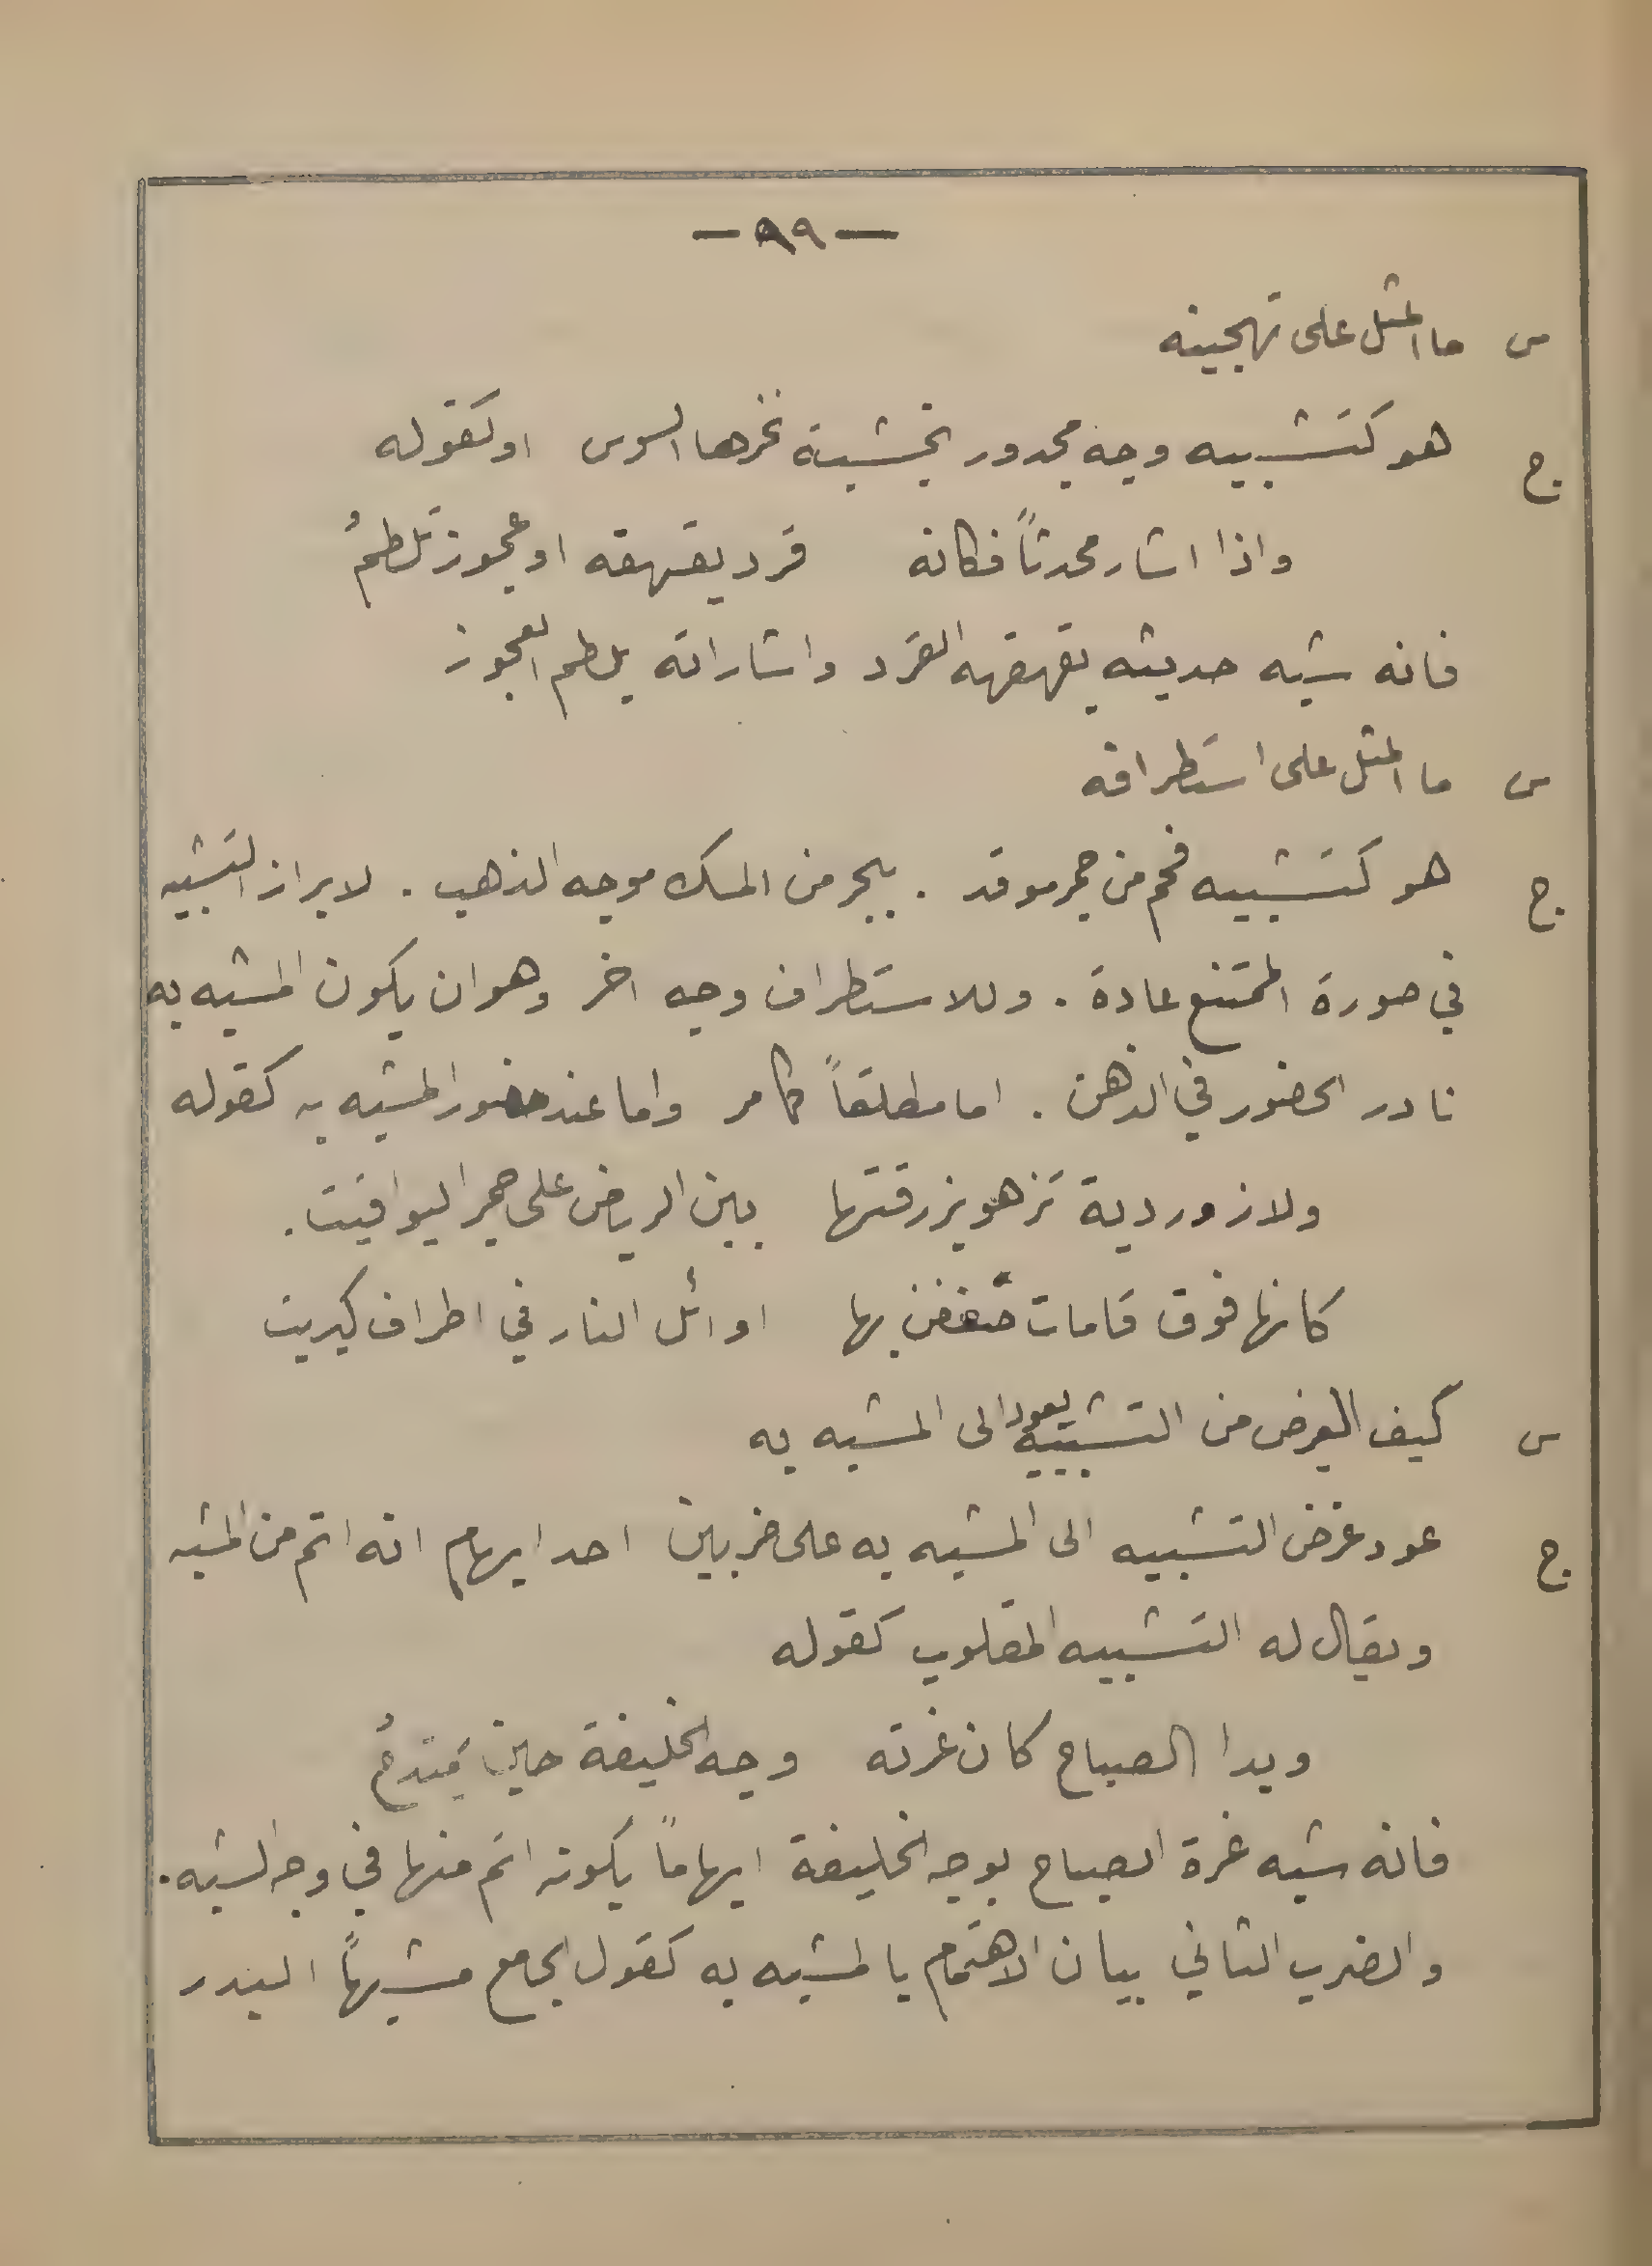 — ٩٩ —
س ما المثل على تهجينه
ج هو كتشبيه وجه مجدور بخشبة نخرها السوس او كقوله
واذا اشار محدثاً فكانه قرد يقهقه او عجوز تلطمُ
فانه شبه حديثه بقهقهه القرد واشاراته بلطم العجوز
س ما المثل على استطرافه
ج هو كتشبيه فحم من جمر موقد . ببحر من المسك موجه الذهب . لابراز التشبيه
في صورة الممتنع عادة . وللاستطراف وجه اخر وهو ان يكون المشبه به
نادر الحضور في الذهن . اما مطلقاً كما مر واما عند حضور المشبه به كقوله
ولازوردية تزهو بزرقتها بين الرياض على حمر اليواقيت .
كانها فوق قامات ضعفن بها اوائل النار في اطراف كبريت
س كيف الغرض من التشبيه يعود الى المشبه به
ج عود غرض التشبيه الى المشبه به على ضربين احد ايهام انه اتم من المشبه
ويقال له التشبيه المقلوب كقوله
وبدا الصباح كان غرته وجه الخليفة حين يمتدحُ
فانه شبه غرة الصباح بوجه الخليفة ايهاماً بكونه اتم منها في وجه الشبه .
والضرب الثاني بيان الاهتمام بالمشبه به كقول الجامع مشبهاً البدر